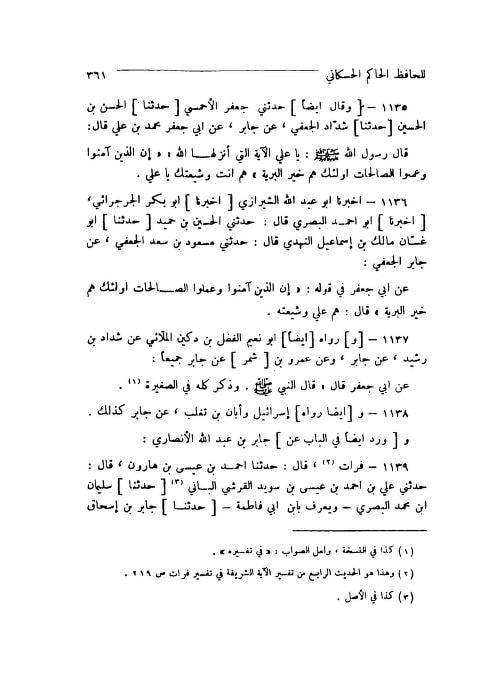 للحافظ الحاكم الحسكاني ٣٦١
١١٣٥ – [ وقال ايضاً ] حدثني جعفر الأحمسي [ حدثنا ] الحسن بن
الحسين [حدثنا] شدّاد الجعفي ، عن جابر ، عن ابي جعفر محمد بن علي قال:
قال رسول الله ﷺ : يا علي الآية التي أنزلهـا الله « إن الذين آمنوا
وعملوا الصالحات اولئك هم خير البرية » هم انت وشيعتك يا علي .
١١٣٦ – اخبرنا ابو عبد الله الشيرازي [ اخبرنا ] ابو بكر الجرجرائي،
[ اخبرنا ] ابو احمد البصري قال : حدثني الحسين بن حميد [ حدثنا ] ابو
غسّان مالك بن إسماعيل النهدي قال : حدثني مسعود بن سعد الجعفي ، عن
جابر الجعفي :
عن ابي جعفر في قوله : « إن الذين آمنوا وعملوا الصـالحات اولئك هم
خير البرية » قال : هم علي وشيعته .
١١٣٧ – [و] رواه [ايضاً] ابو نعيم الفضل بن دكين الملائي عن شداد بن
رشيد ، عن جابر ، وعن عمرو بن [ شمر ] عن جابر جميعاً :
عن ابي جعفر قال ، قال النبي ﷺ . وذكر كله في الصفيرة (١) .
١١٣٨ – و [ايضا رواه] إسرائيل وأبان بن تغلب ، عن جابر كذلك .
و [ ورد ايضاً في الباب عن ] جابر بن عبد الله الأنصاري :
١١٣٩ – فرات (٢) ، قال : حدثنا احمد بن عيسى بن هارون ، قال :
حدثني علي بن احمد بن عيسى بن سويد القرشي البـاني (٣) [ حدثنا ] سليمان
ابن محمد البصري – ويعرف بابن ابي فاطمة – [ حدثنـا ] جابر بن إسحاق
(١) كذا في النسخة ، ولعل الصواب : « في تفسيره » .
(٢) وهذا هو الحديث الرابع من تفسير الآية الشريفة في تفسير فرات ص ٢١٩ .
(٣) كذا في الأصل .